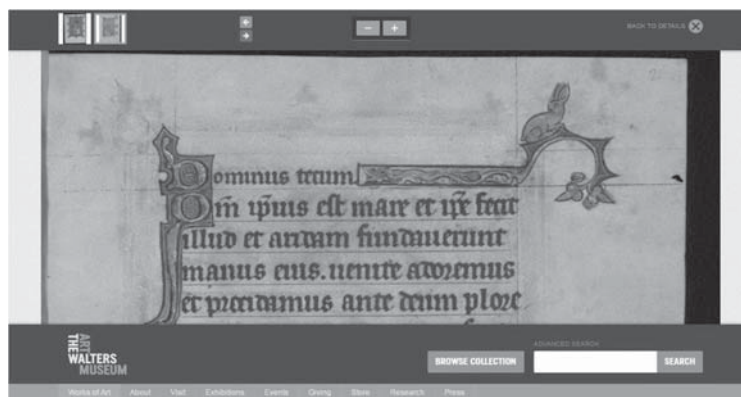 BACK TO DETAILS
Dominus tecum.
Qm̄ ip̄ius est mare et ip̄e fecit
illud et aridam fundauerunt
manus eius. uenite adoremus
et procidamus ante deum plore
THE
ART
WALTERS
MUSEUM
BROWSE COLLECTION
ADVANCED SEARCH
SEARCH
Works of Art About Visit Exhibitions Events Giving Store Research Press